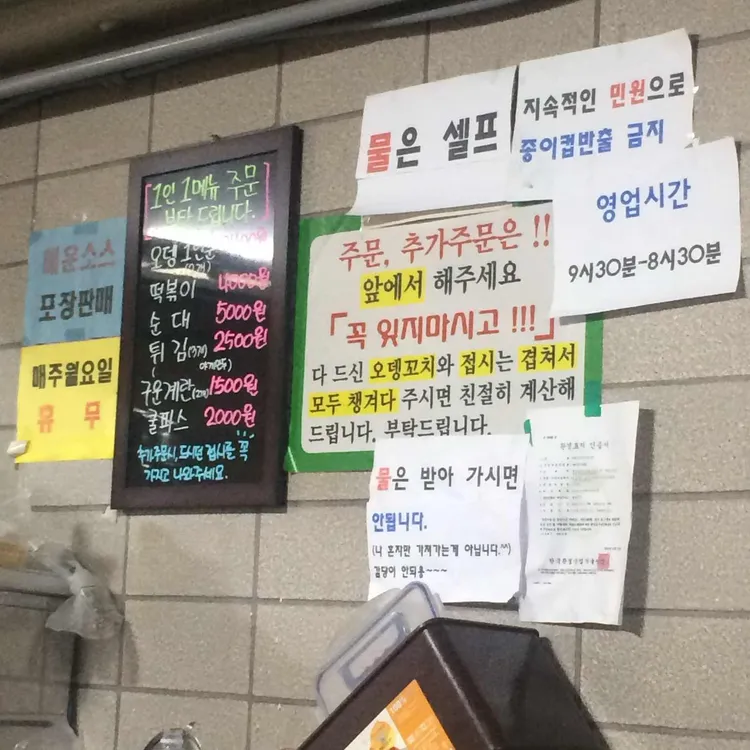 매운소스
포장판매
매주월요일
휴무
1인 1메뉴 주문
부탁 드립니다.
오뎅 1인분
떡볶이 4000원
순대 5000원
튀김(3개) 2500원
구운계란(2개) 1500원
쿨피스 2000원
추가주문시, 드시던 접시를 꼭
가지고 나와주세요.
물은 셀프
지속적인 민원으로
종이컵반출 금지
영업시간
9시30분-8시30분
주문, 추가주문은 !!
앞에서 해주세요
「꼭 잊지마시고 !!!」
다 드신 오뎅꼬치와 접시는 겹쳐서
모두 챙겨다 주시면 친절히 계산해
드립니다. 부탁드립니다.
물은 받아 가시면
안됩니다.
(나 혼자만 가져가는게 아닙니다.^^)
감당이 안되용~~~